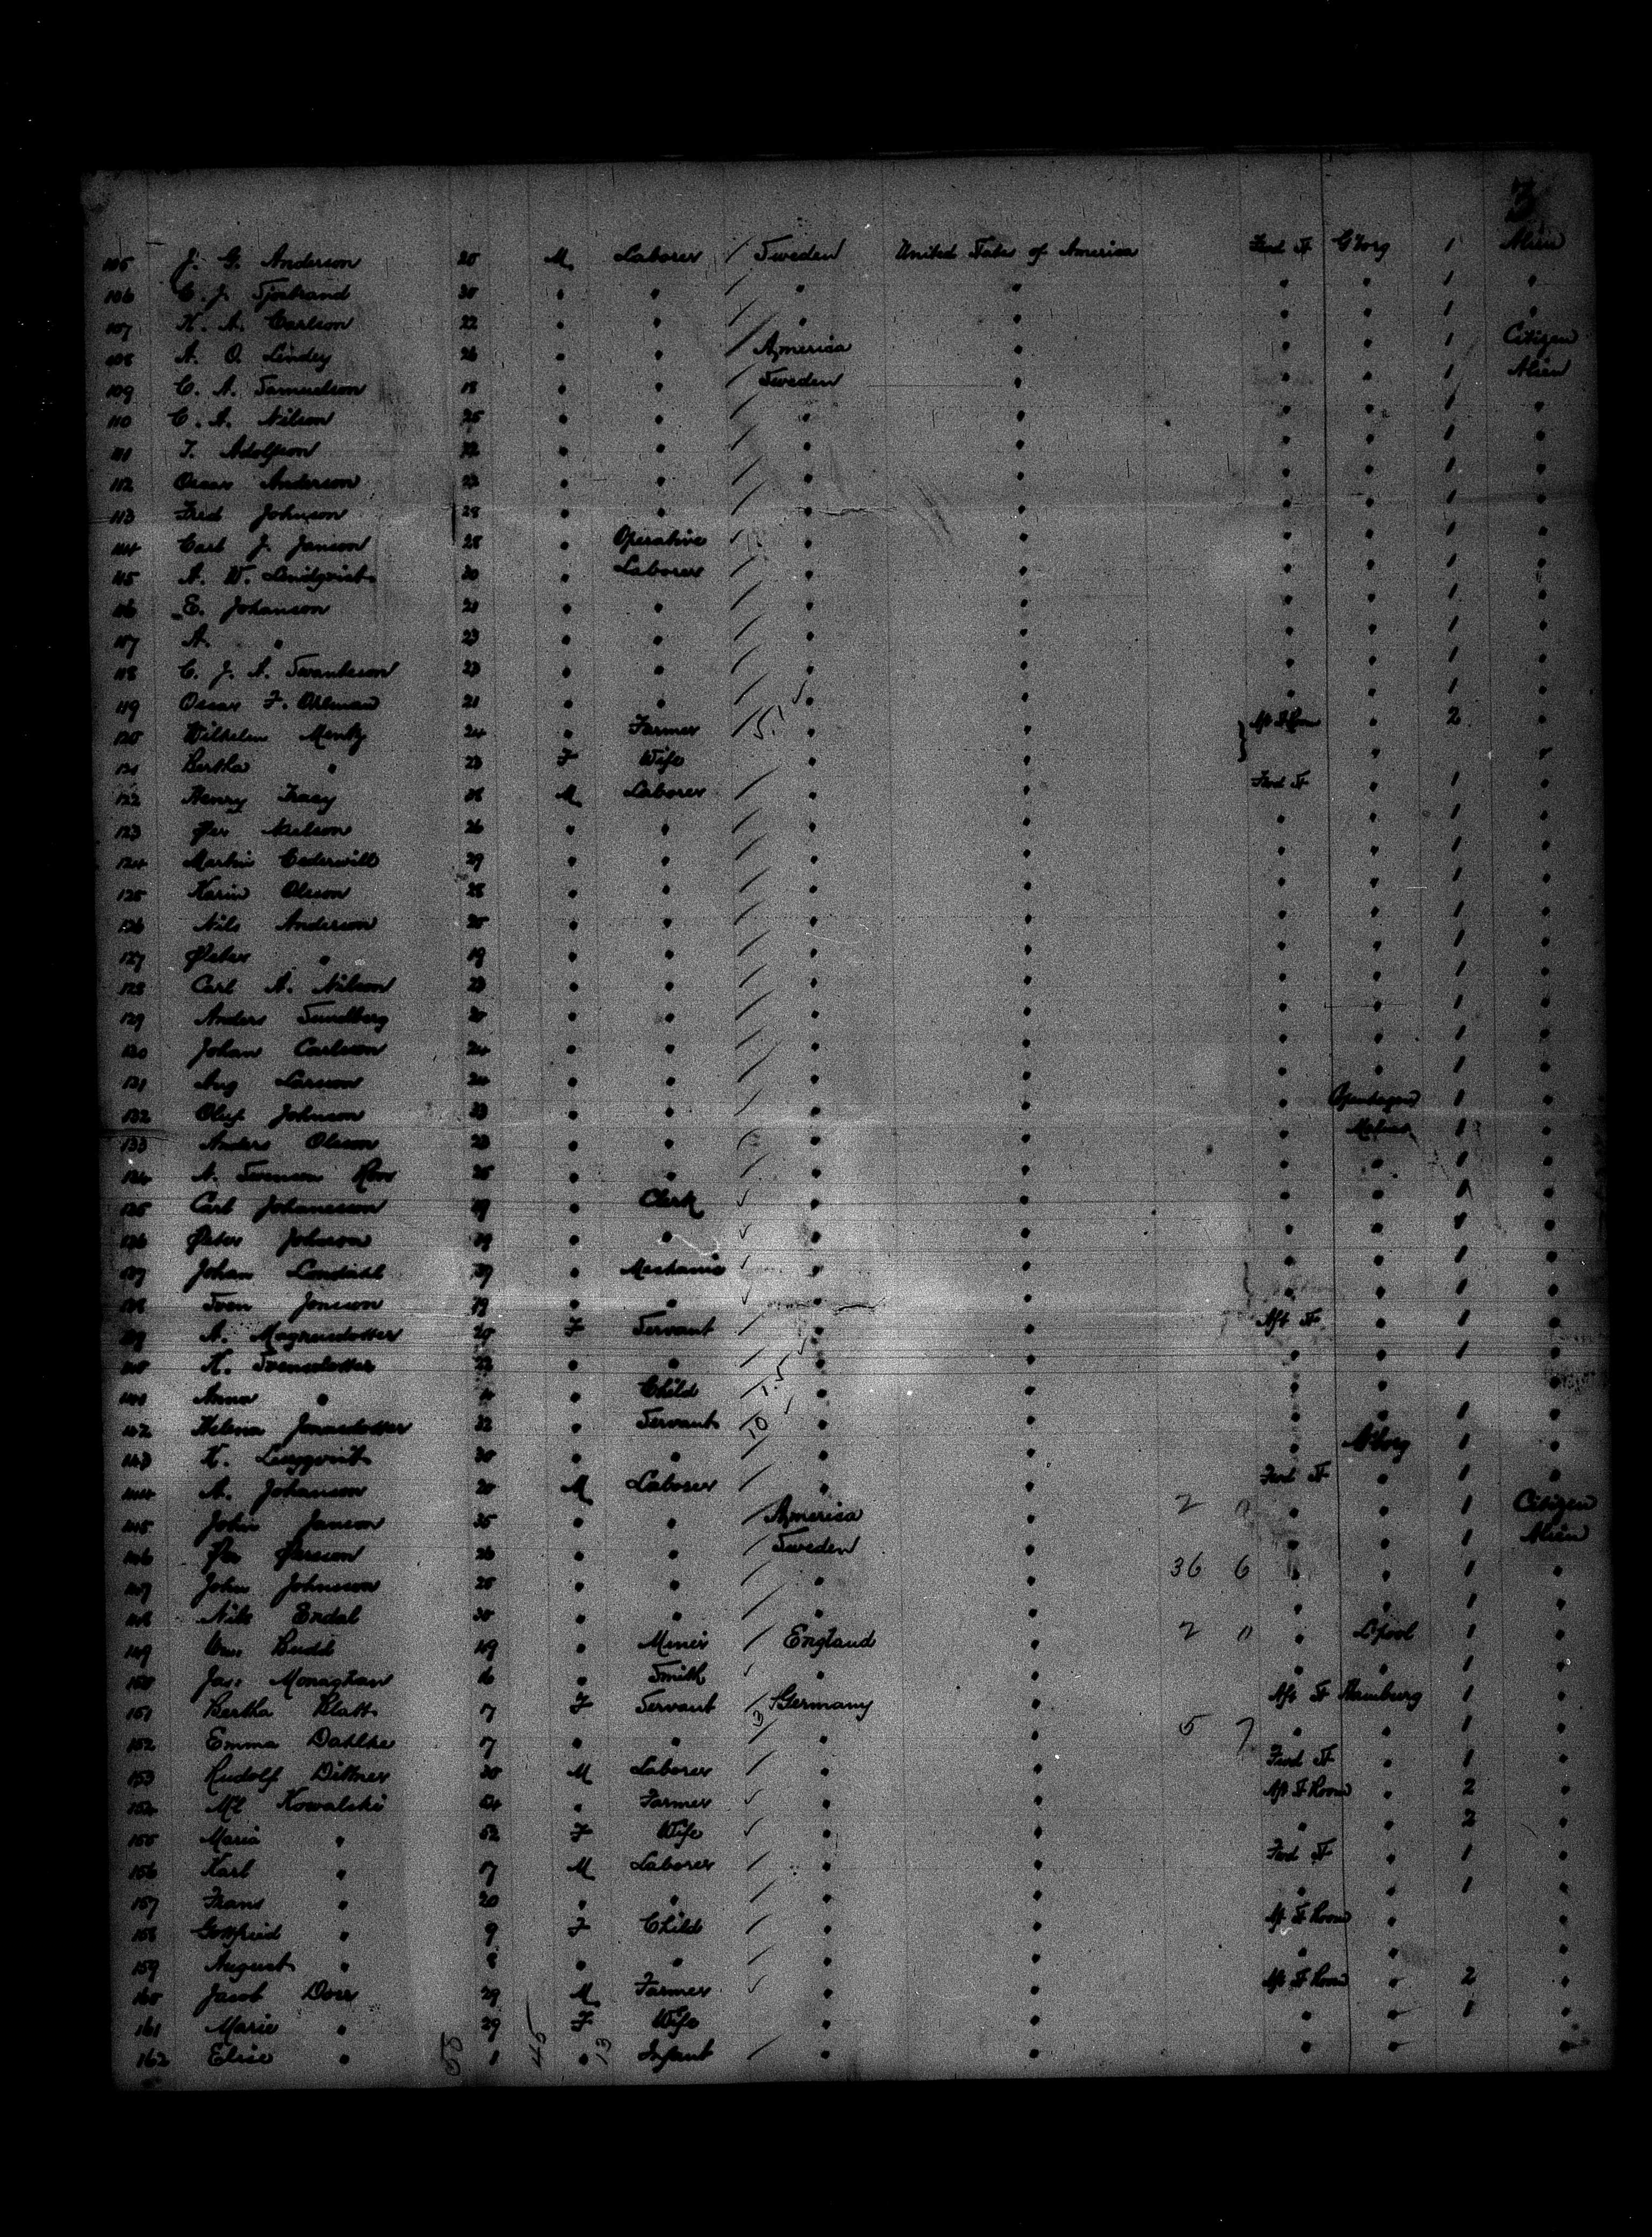 3
105 J. G. Anderson 20 M Laborer / Sweden United States of America Fwd St G'borg 1 Alien
106 C. J. Sjostrand 30 " " / " " " " 1 "
107 K. A. Carlson 22 " " / " " " " 1 "
108 A. O. Lindey 26 " " / America " " " 1 Citizen
109 C. A. Samuelson 18 " " / Sweden " " " 1 Alien
110 C. A. Nilson 25 " " / " " " " 1 "
111 T. Adolfson " " / " " " " 1 "
112 Oscar Anderson 23 " " / " " " " 1 "
113 Fred Johnson 28 " " / " " " " 1 "
114 Carl J. Janson 28 " Operative " " " " 1 "
115 A. W. Lindqvist 20 " Laborer / " " " " 1 "
116 E. Johanson 21 " " / " " " " 1 "
117 A. " 23 " " / " " " " 1 "
118 C. J. A. Swanteson 23 " " / " " " " 1 "
119 Oscar F. Ohlman 21 " " / " " " " 1 "
120 Wilhelm 24 " Farmer / 5.1 " " Aft St Room " 2
121 Bertha " 23 F Wife " " " "
122 Henry Tracy M Laborer / " " Fwd St " 1 "
123 Per Nielson 26 " " / " " " " 1 "
124 Martin Cederwill 29 " " / " " " " 1 "
125 Karin Olsson 28 " " / " " " " 1 "
126 Nils Anderson 20 " " / " " " " 1 "
127 Peter " 19 " " / " " " " 1 "
128 Carl A. Nilson 23 " " / " " " " 1 "
129 Anders Sundberg 20 " " / " " " " 1 "
130 Johan Carlson 24 " " / " " " " 1 "
131 Aug Larsson 24 " " / " " " " 1 "
132 Oluf Johnson 23 " " / " " " Copenhagen 1 "
133 Anders Olsson 23 " " / " " " Malmo 1 "
134 A. Svenson 25 " " / " " " " 1 "
135 Carl Johansson 19 " Clerk " " " " 1 "
136 Peter Johnson 19 " " " " " " 1 "
137 Johan Londahl " Mechanic " " " " 1 "
138 Sven Jonson 19 " " " " " " 1 "
139 A. Magnusdotter 20 F Servant / " " Aft St " 1 "
140 K. Svensdotter 22 " " / " " " " 1 "
141 Anna " " Child / 1.5 " " " " "
142 Helena Jonasdotter 22 " Servant / 10 " " " " 1 "
143 K. Ljungqvist 30 " " / " " " G'borg 1 "
144 A. Johanson 20 M Laborer / " " Fwd St " 1 "
145 John Janson 35 " " / America " 2 0 " " 1 Citizen
146 Per Persson 26 " " / Sweden " " " 1 Alien
147 John Johnson 25 " " / " " 36 6 " " 1 "
148 Nils Endal 30 " " / " " " " 1 "
149 Wm Budd 49 " Miner / England " 2 0 " L'pool 1 "
150 Jas. Monaghan " Smith " " " " 1 "
151 Bertha Blatt 17 F Servant / 3 Germany " Aft St Hamburg 1 "
152 Emma Dahlke 17 " " / " " 5 7 " " 1 "
153 Rudolf Dittner 30 M Laborer / " " Fwd St " 1 "
154 Ml Kowalski 54 " Farmer " " Aft St Room " 2 "
155 Maria " 52 F Wife " " " " 2 "
156 Karl " 17 M Laborer / " " Fwd St " 1 "
157 Frans " 20 " " / " " " " 1 "
158 Gottfried " 9 F Child / " " Aft St Room " "
159 August " 8 " " / " " " " "
160 Jacob Dorr 29 M Farmer " " Aft St Room " 2 "
161 Marie " 29 F Wife " " " " 1 "
162 Elise " 1 " Infant / " " " " "
58 45 13